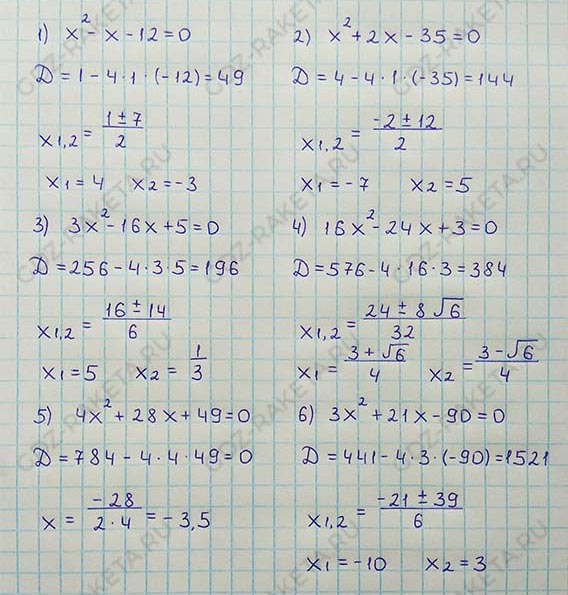 1) x² - x - 12 = 0
D = 1 - 4 · 1 · (-12) = 49
x1,2 = (1 ± 7)/2
x1 = 4 x2 = -3
2) x² + 2x - 35 = 0
D = 4 - 4 · 1 · (-35) = 144
x1,2 = (-2 ± 12)/2
x1 = -7 x2 = 5
3) 3x² - 16x + 5 = 0
D = 256 - 4 · 3 · 5 = 196
x1,2 = (16 ± 14)/6
x1 = 5 x2 = 1/3
4) 16x² - 24x + 3 = 0
D = 576 - 4 · 16 · 3 = 384
x1,2 = (24 ± 8√6)/32
x1 = (3 + √6)/4 x2 = (3 - √6)/4
5) 4x² + 28x + 49 = 0
D = 784 - 4 · 4 · 49 = 0
x = -28/(2 · 4) = -3,5
6) 3x² + 21x - 90 = 0
D = 441 - 4 · 3 · (-90) = 1521
x1,2 = (-21 ± 39)/6
x1 = -10 x2 = 3
GDZ-RAKETA.RU